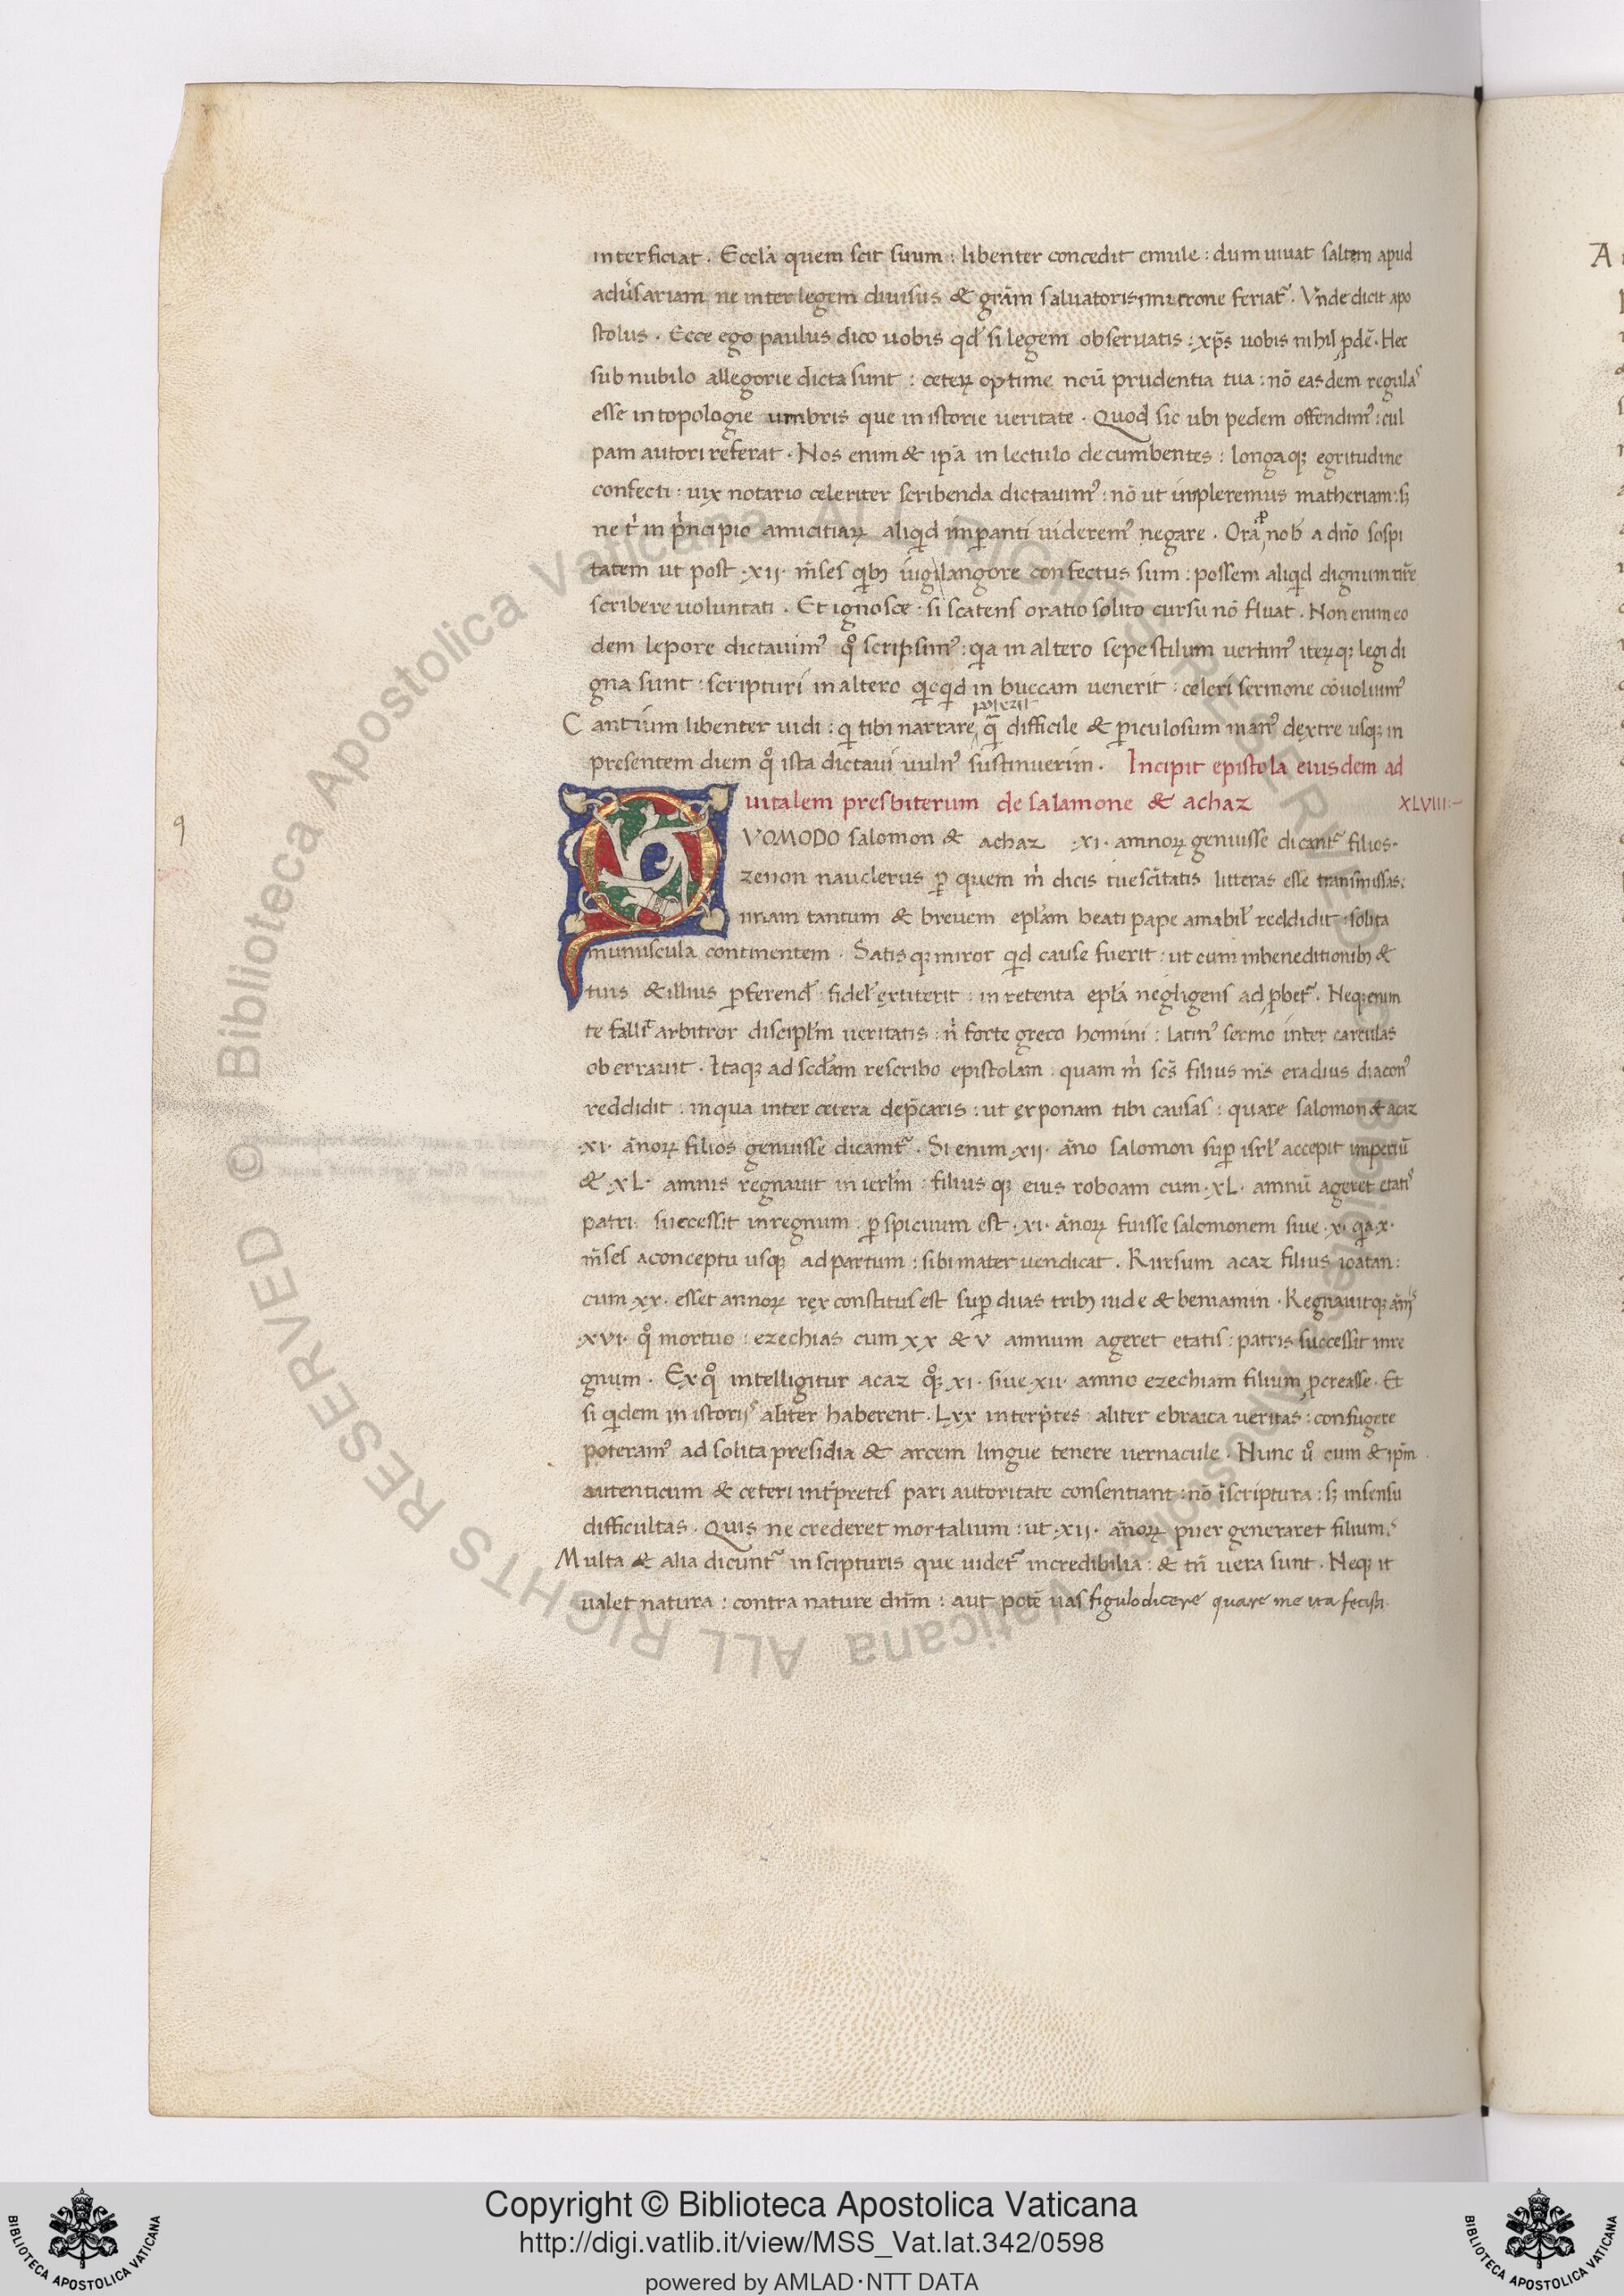 interficiat . Eccl̄a quem scit suum : libenter concedit emule : dum uiuat saltem apud
adūsariam ne inter legem diuisus & grām saluatoris, mucrone feriat᷑ . Vnde dicit apo
stolus . Ecce ego paulus dico uobis qd̄ si legem obseruatis : xp̄s uobis nihil ꝓdē . Hec
sub nubilo allegorie dicta sunt : ceteꝝ optime nouū prudentia tua : nō easdem regulas
esse in topologie umbris que in istorie ueritate . Quod sic ubi pedem offendimꝰ : cul
pam autori referat . Nos enim & ip̄a in lectulo decumbentes : longaqꝫ egritudine
confecti : uix notario celeriter scribenda dictauimꝰ : nō ut impleremus matheriam : sꝫ
ne t' in p'ncipio amicitiaꝝ aliqid imꝑanti uideremꝰ negare . Ora nob a dn̄o sospi
tatem ut post ·XII· m̄ses qibꝫ iugi langore confectus sum : possem aliqid dignum
scribere uoluntati . Et ignosce : si scatens oratio solito cursu nō fluat . Non enim eo
dem lepore dictauimꝰ qͦ scripsimꝰ : qia in altero sepe stilum uertimꝰ iteꝝqꝫ legi di
gna sunt : scripturi in altero qicqid in buccam uenerit : celeri sermone cōuoluimꝰ
Cantium libenter uidi : qi tibi narrare poterit q̄ difficile & ꝑiculosum manꝰ dextre usqꝫ in
presentem diem qͦ ista dictaui uulnꝰ sustinuerim . Incipit epistola eiusdem ad
uitalem presbiterum de salamone & achaz XLVIII:-
QVOMODO salomon & achaz ·XI· annoꝝ genuisse dicant᷑ filios·
zenon nauclerus ꝑ quem m' dicis tue sc̄itatis litteras esse transmissas:
unam tantum & breuem epl̄am beati pape amabil' reddidit : solita
munuscula continentem . Satisqꝫ miror qid cause fuerit : ut cum in beneditionibꝫ &
tuis & illius ꝑferend' fidel' extiterit : in retenta epl̄a negligens adꝓbet᷑ . Neqꝫ enim
te falli᷑ arbitror discipl̄m ueritatis : n' forte greco homini : latinꝰ sermo inter carculas
oberrauit . Itaqꝫ ad scd̄am rescribo epistolam : quam m' sc̄s filius m̄s eradius diaconꝰ
reddidit : in qua inter cetera dep̄caris : ut exponam tibi causas : quare salomon & acaz
·XI· ānoꝝ filios genuisse dicant᷑ . Si enim ·XII· āno salomon suꝑ isrl̄ accepit imperiū
& ·XL· annis regnauit in ierl̄m : filiusqꝫ eius roboam cum ·XL· annū ageret etatis
patri successit in regnum : ꝑspicuum est ·XI· ānoꝝ fuisse salomonem siue ·X· qia ·X·
m̄ses a conceptu usqꝫ ad partum : sibi mater uendicat . Rursum acaz filius ioatan :
cum XX· esset annoꝝ rex constitus est suꝑ duas tribꝫ iude & beniamin . Regnauitqꝫ ām̄s
·XVI· qͦ mortuo : ezechias cum XX & V annum ageret etatis : patris successit in re
gnum . Ex qͦ intelligitur acaz qͦqꝫ XI· siue XII· anno ezechiam filium ꝓcreasse . Et
si qidem in istoriis aliter haberent . Lxx interp̄tes : aliter ebraica ueritas : confugere
poteramꝰ ad solita presidia & arcem lingue tenere uernacule . Nunc uͦ cum & ip̄m
autenticum & ceteri int̄pretes pari autoritate consentiant : nō ī scriptura : sꝫ in sensu
difficultas . Quis ne crederet mortalium : ut ·XII· ānoꝝ puer generaret filium?
Multa & alia dicunt᷑ in scipturis que uidet᷑ incredibilia : & tn̄ uera sunt . Neqꝫ it
ualet natura : contra nature dn̄m : aut potē uas figulo dicere quare me ita fecisti·
Copyright © Biblioteca Apostolica Vaticana
http://digi.vatlib.it/view/MSS_Vat.lat.342/0598
powered by AMLAD·NTT DATA